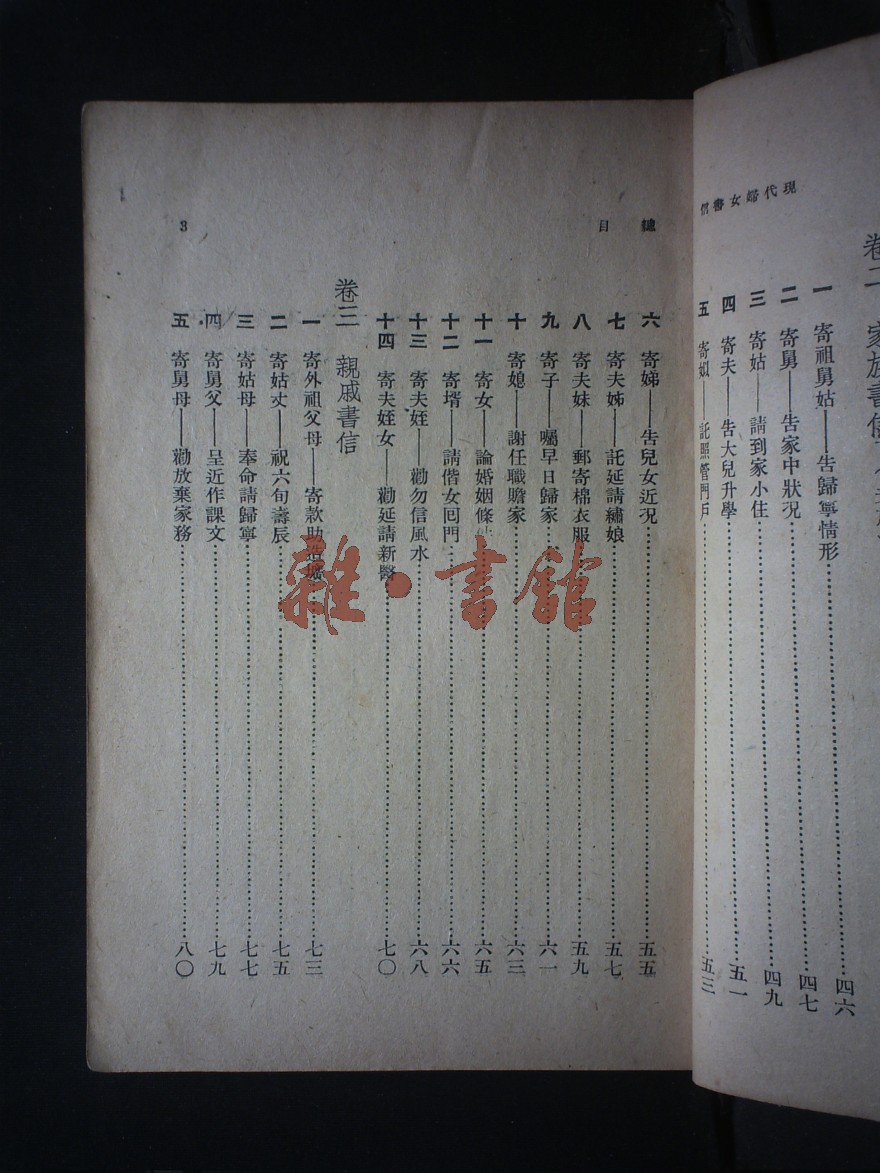 現代婦女書信
卷二 家族書信
一 寄祖舅姑——告歸寧情形……四六
二 寄舅——告家中狀況……四七
三 寄姑——請到家小住……四九
四 寄夫——告大兒升學……五一
五 寄姒——託照管門戶……五三
總目
六 寄娣——告兒女近況……五五
七 寄夫姊——託延請繡娘……五七
八 寄夫妹——郵寄棉衣服……五九
九 寄子——囑早日歸家……六一
十 寄媳——謝任職贍家……六三
十一 寄女——論婚姻條……六五
十二 寄壻——請偕女囘門……六六
十三 寄夫姪——勸勿信風水……六八
十四 寄夫姪女——勸延請新醫……七〇
卷三 親戚書信
一 寄外祖父母——寄款助造壙……七三
二 寄姑丈——祝六旬壽辰……七五
三 寄姑母——奉命請歸寧……七七
四 寄舅父——呈近作課文……七九
五 寄舅母——勸放棄家務……八〇
3
雜·書館